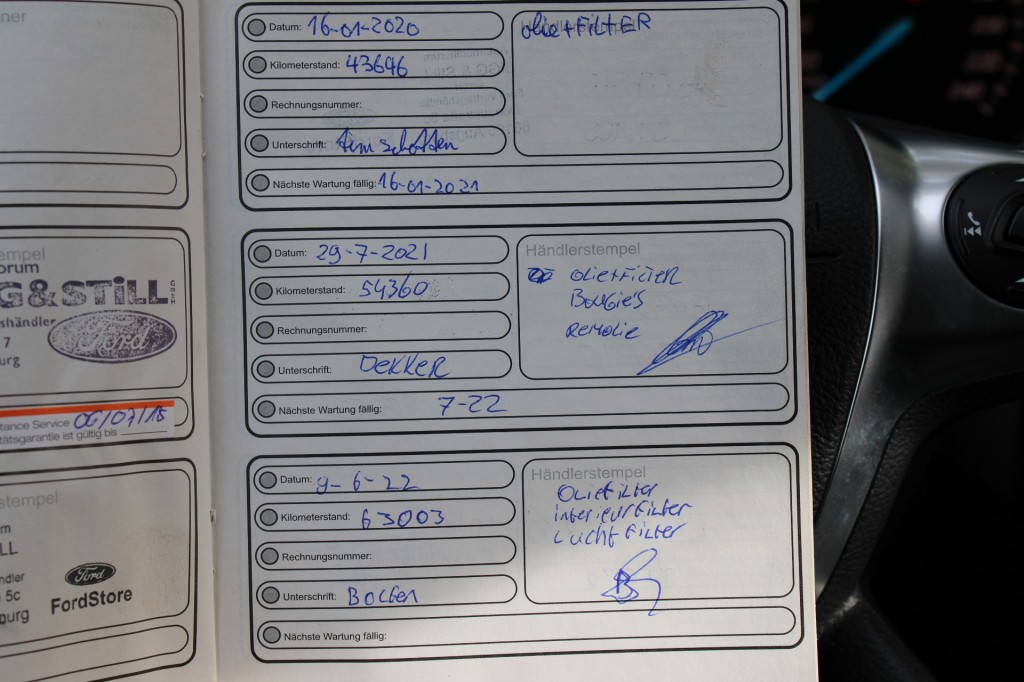 ner
stempel
orum
G & STiLL GMBH
shändler
Ford
7
urg
tance Service 06/07/15
tätsgarantie ist gültig bis
stempel
m
LL
ndler
5c
burg
Ford
FordStore
Datum: 16-01-2020
Kilometerstand: 43646
Rechnungsnummer:
Unterschrift:
Nächste Wartung fällig: 16-01-2021
olie+FILTER
Datum: 29-7-2021
Kilometerstand: 54360
Rechnungsnummer:
Unterschrift: DEKKER
Nächste Wartung fällig: 7-22
Händlerstempel
OLIE+FILTER
BOUGIE'S
REMOLIE
Datum: 9-6-22
Kilometerstand: 63003
Rechnungsnummer:
Unterschrift:
Nächste Wartung fällig:
Händlerstempel
OLIEFILTER
INTERIEURFILTER
LUCHTFILTER